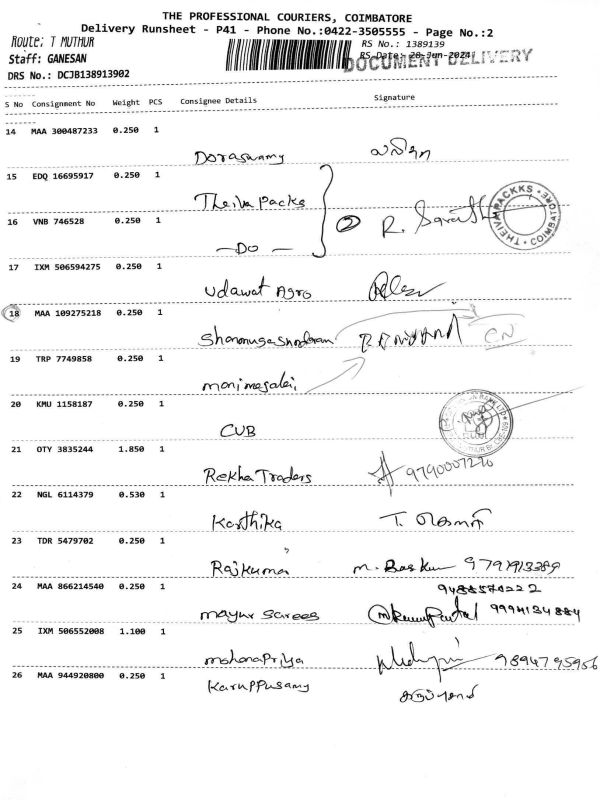 THE PROFESSIONAL COURIERS, COIMBATORE
Delivery Runsheet - P41 - Phone No.:0422-3505555 - Page No.:2
Route: T MUTHUR
RS No.: 1389139
Staff: GANESAN
RS Date: 28-Jun-2024
DOCUMENT DELIVERY
DRS No.: DCJB138913902
S No Consignment No Weight PCS Consignee Details Signature
14 MAA 300487233 0.250 1
Doraswamy
15 EDQ 16695917 0.250 1
Theiva Packs
16 VNB 746528 0.250 1
2 R. Sarath
THEIVA PACKKS * COIMBATORE *
- DO -
17 IXM 506594275 0.250 1
Udawat Agro
18 MAA 109275218 0.250 1
CN
19 TRP 7749858 0.250 1
manimegalai
20 KMU 1158187 0.250 1
CUB
21 OTY 3835244 1.850 1
Rekha Traders
22 NGL 6114379 0.530 1
Karthika T.
23 TDR 5479702 0.250 1
Rajkumar
24 MAA 866214540 0.250 1
mayur Sarees
25 IXM 506552008 1.100 1
mohanapriya
26 MAA 944920800 0.250 1
Karuppusamy